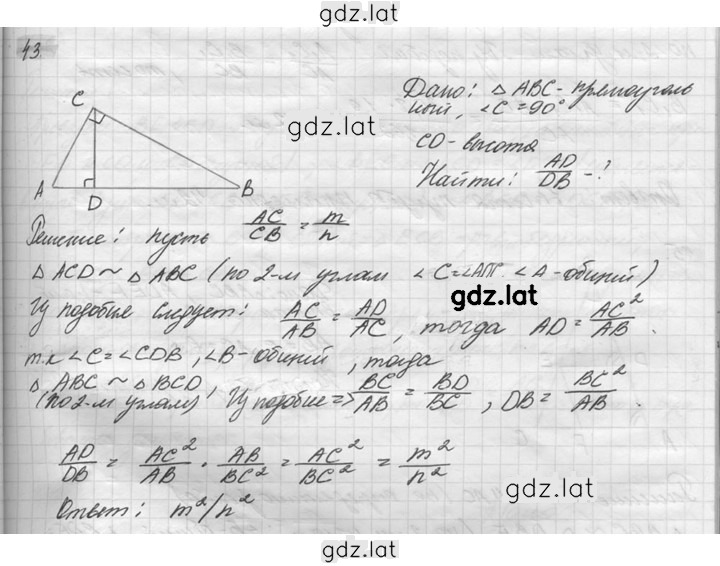 gdz.lat
43
C
A
D
B
Дано: △ ABC - прямоуголь
ный, ∠C = 90°
CD - высота
Найти: AD/DB - ?
gdz.lat
Решение: пусть AC/CB = m/n
△ ACD ~ △ ABC (по 2-м углам ∠C = ∠ ∠A - общий)
gdz.lat
Из подобие следует: AC/AB = AD/AC, тогда AD = AC²/AB.
т.к ∠C = ∠CDB, ∠B - общий, тогда
△ ABC ~ △ BCD
(по 2-м углам) Из подобие => BC/AB = BD/BC, DB = BC²/AB.
AD/DB = AC²/AB · AB/BC² = AC²/BC² = m²/n²
Ответ: m²/n²
gdz.lat
gdz.lat